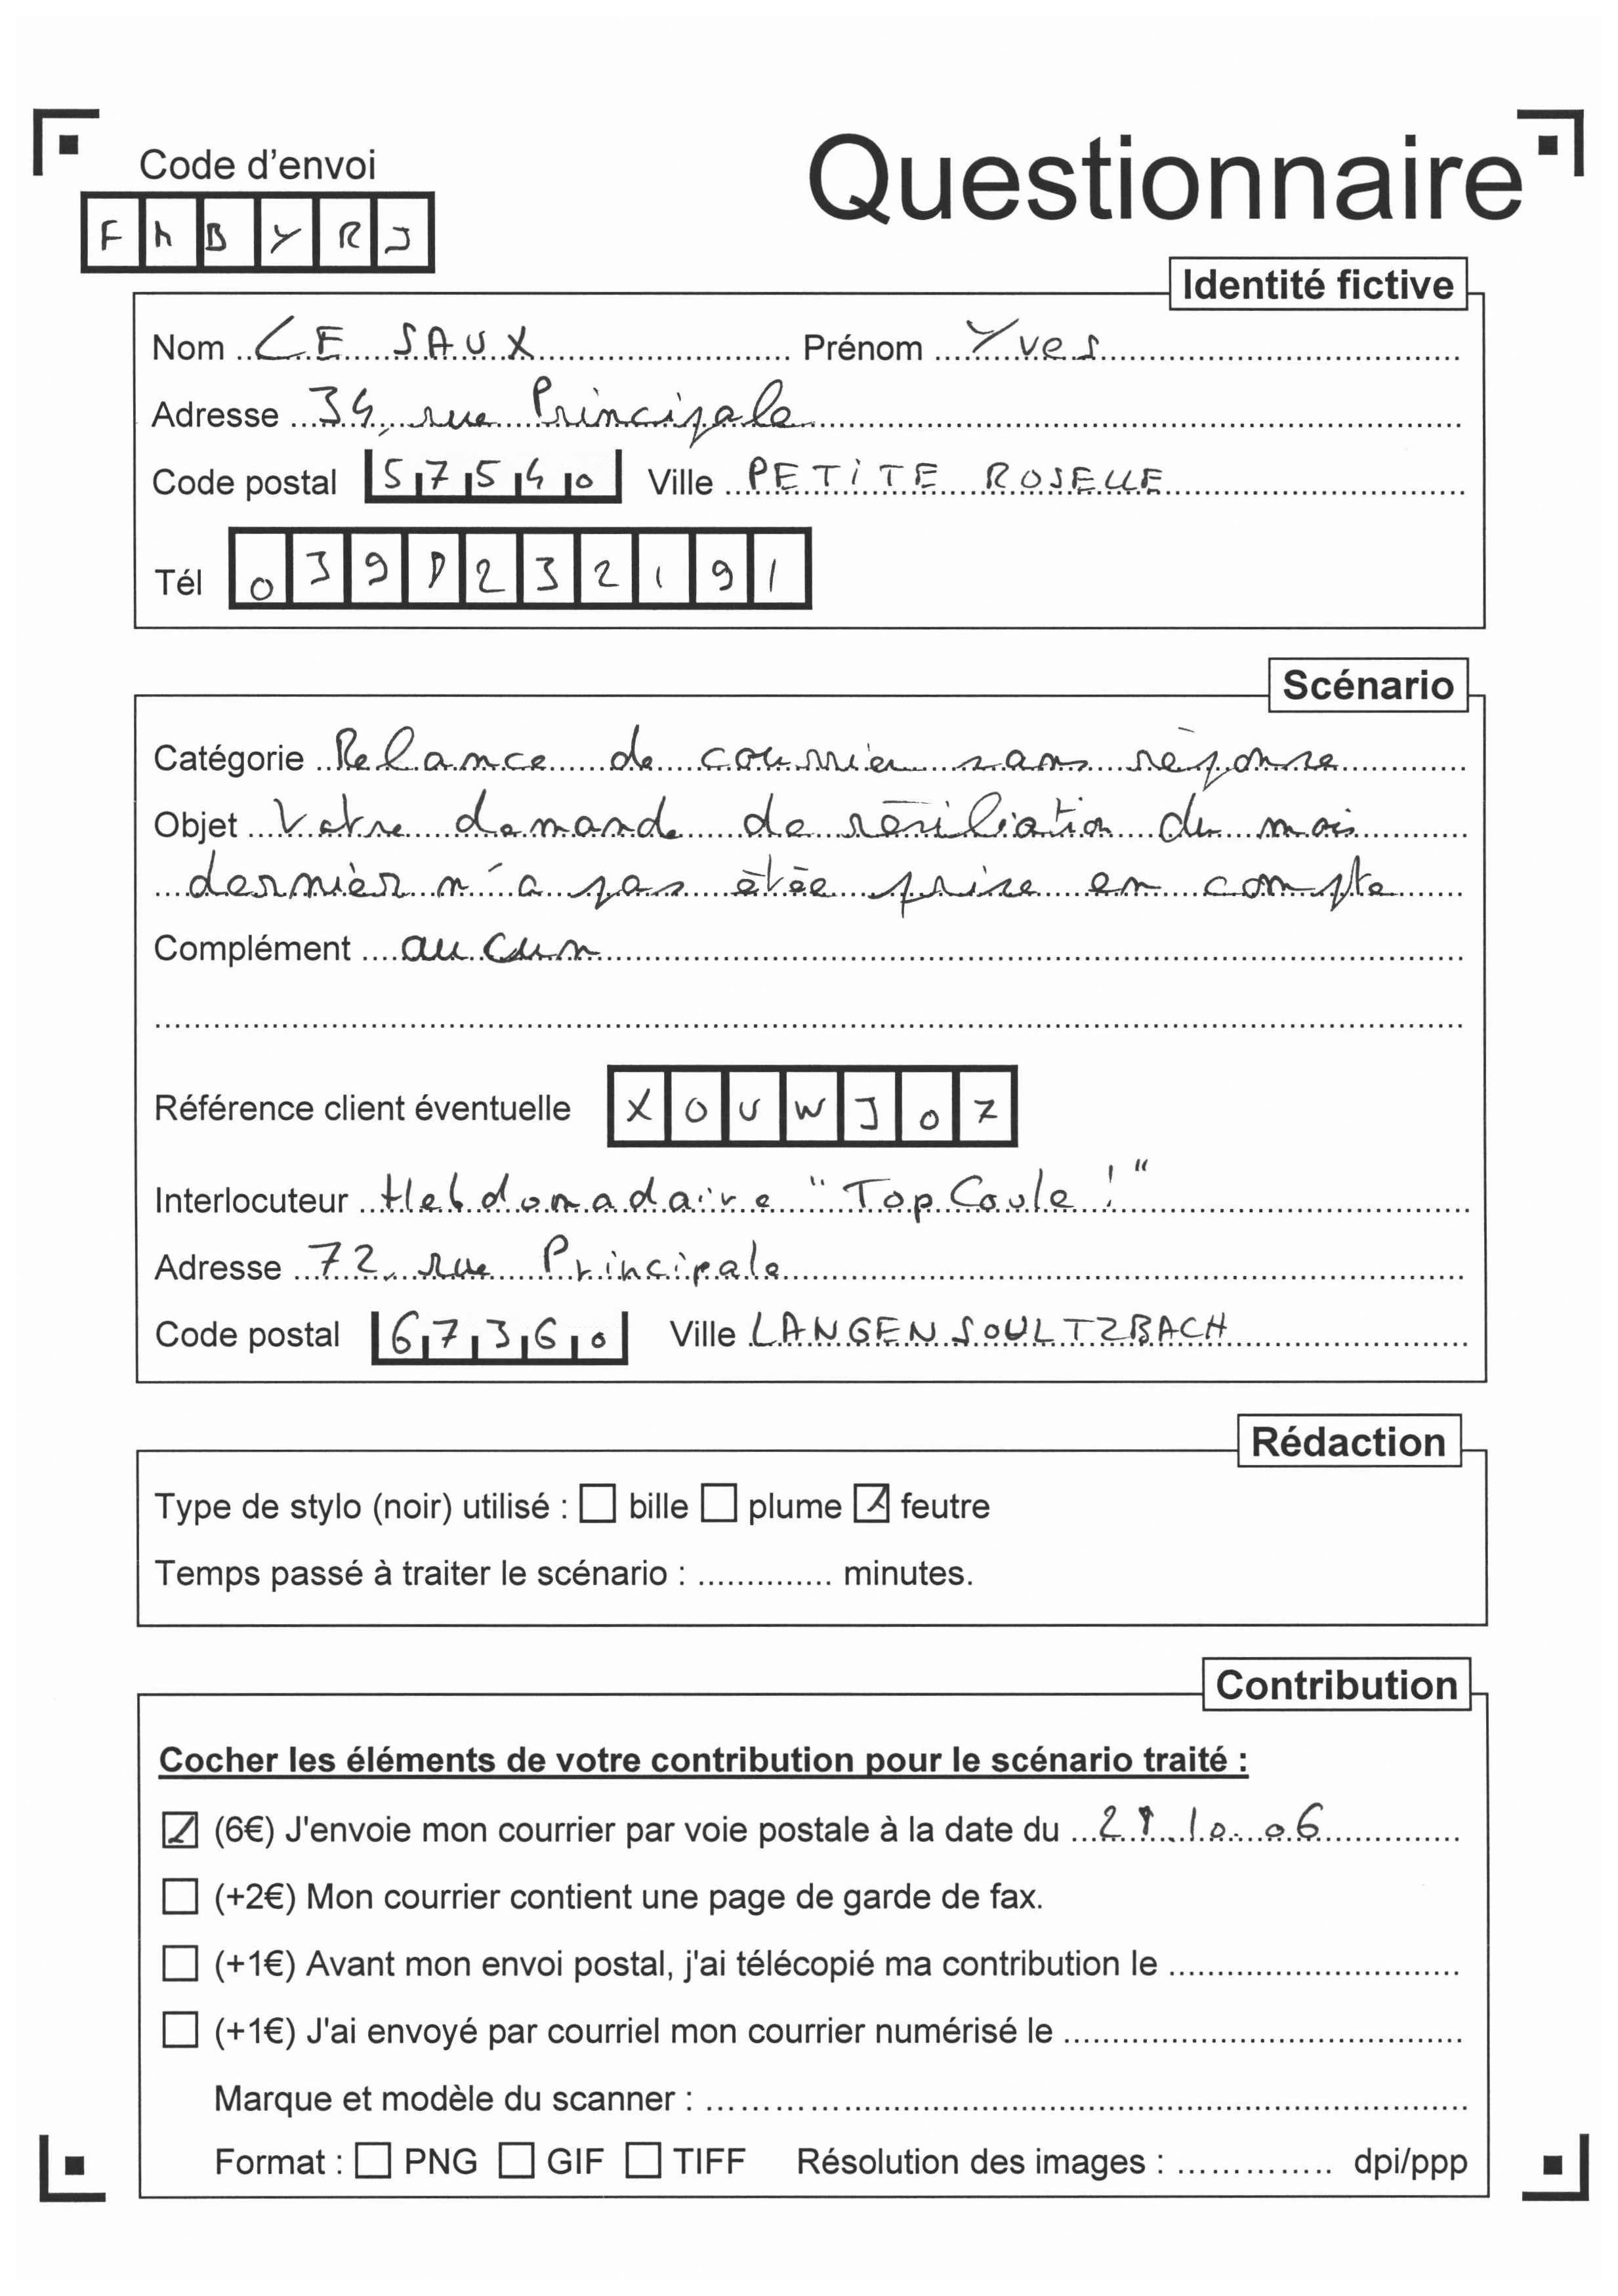 Code d'envoi
Questionnaire
F h B Y R J
Identité fictive
Nom LE SAUX Prénom Yves
Adresse 34, rue Principale
Code postal 57540 Ville PETITE ROSELLE
Tél 039 232191
Scénario
Catégorie Relance de courrier sans réponse
Objet Votre demande de résiliation du mois
dernièr n'a pas étée prise en compte
Complément aucun
Référence client éventuelle X O U W J 0 7
Interlocuteur Hebdomadaire "Top Coule !"
Adresse 72, rue Principale
Code postal 67360 Ville LANGENSOULTZBACH
Rédaction
Type de stylo (noir) utilisé : bille plume feutre
Temps passé à traiter le scénario : .............. minutes.
Contribution
Cocher les éléments de votre contribution pour le scénario traité :
(6€) J'envoie mon courrier par voie postale à la date du 10.06
(+2€) Mon courrier contient une page de garde de fax.
(+1€) Avant mon envoi postal, j'ai télécopié ma contribution le
(+1€) J'ai envoyé par courriel mon courrier numérisé le
Marque et modèle du scanner :
Format : PNG GIF TIFF Résolution des images : .............. dpi/ppp